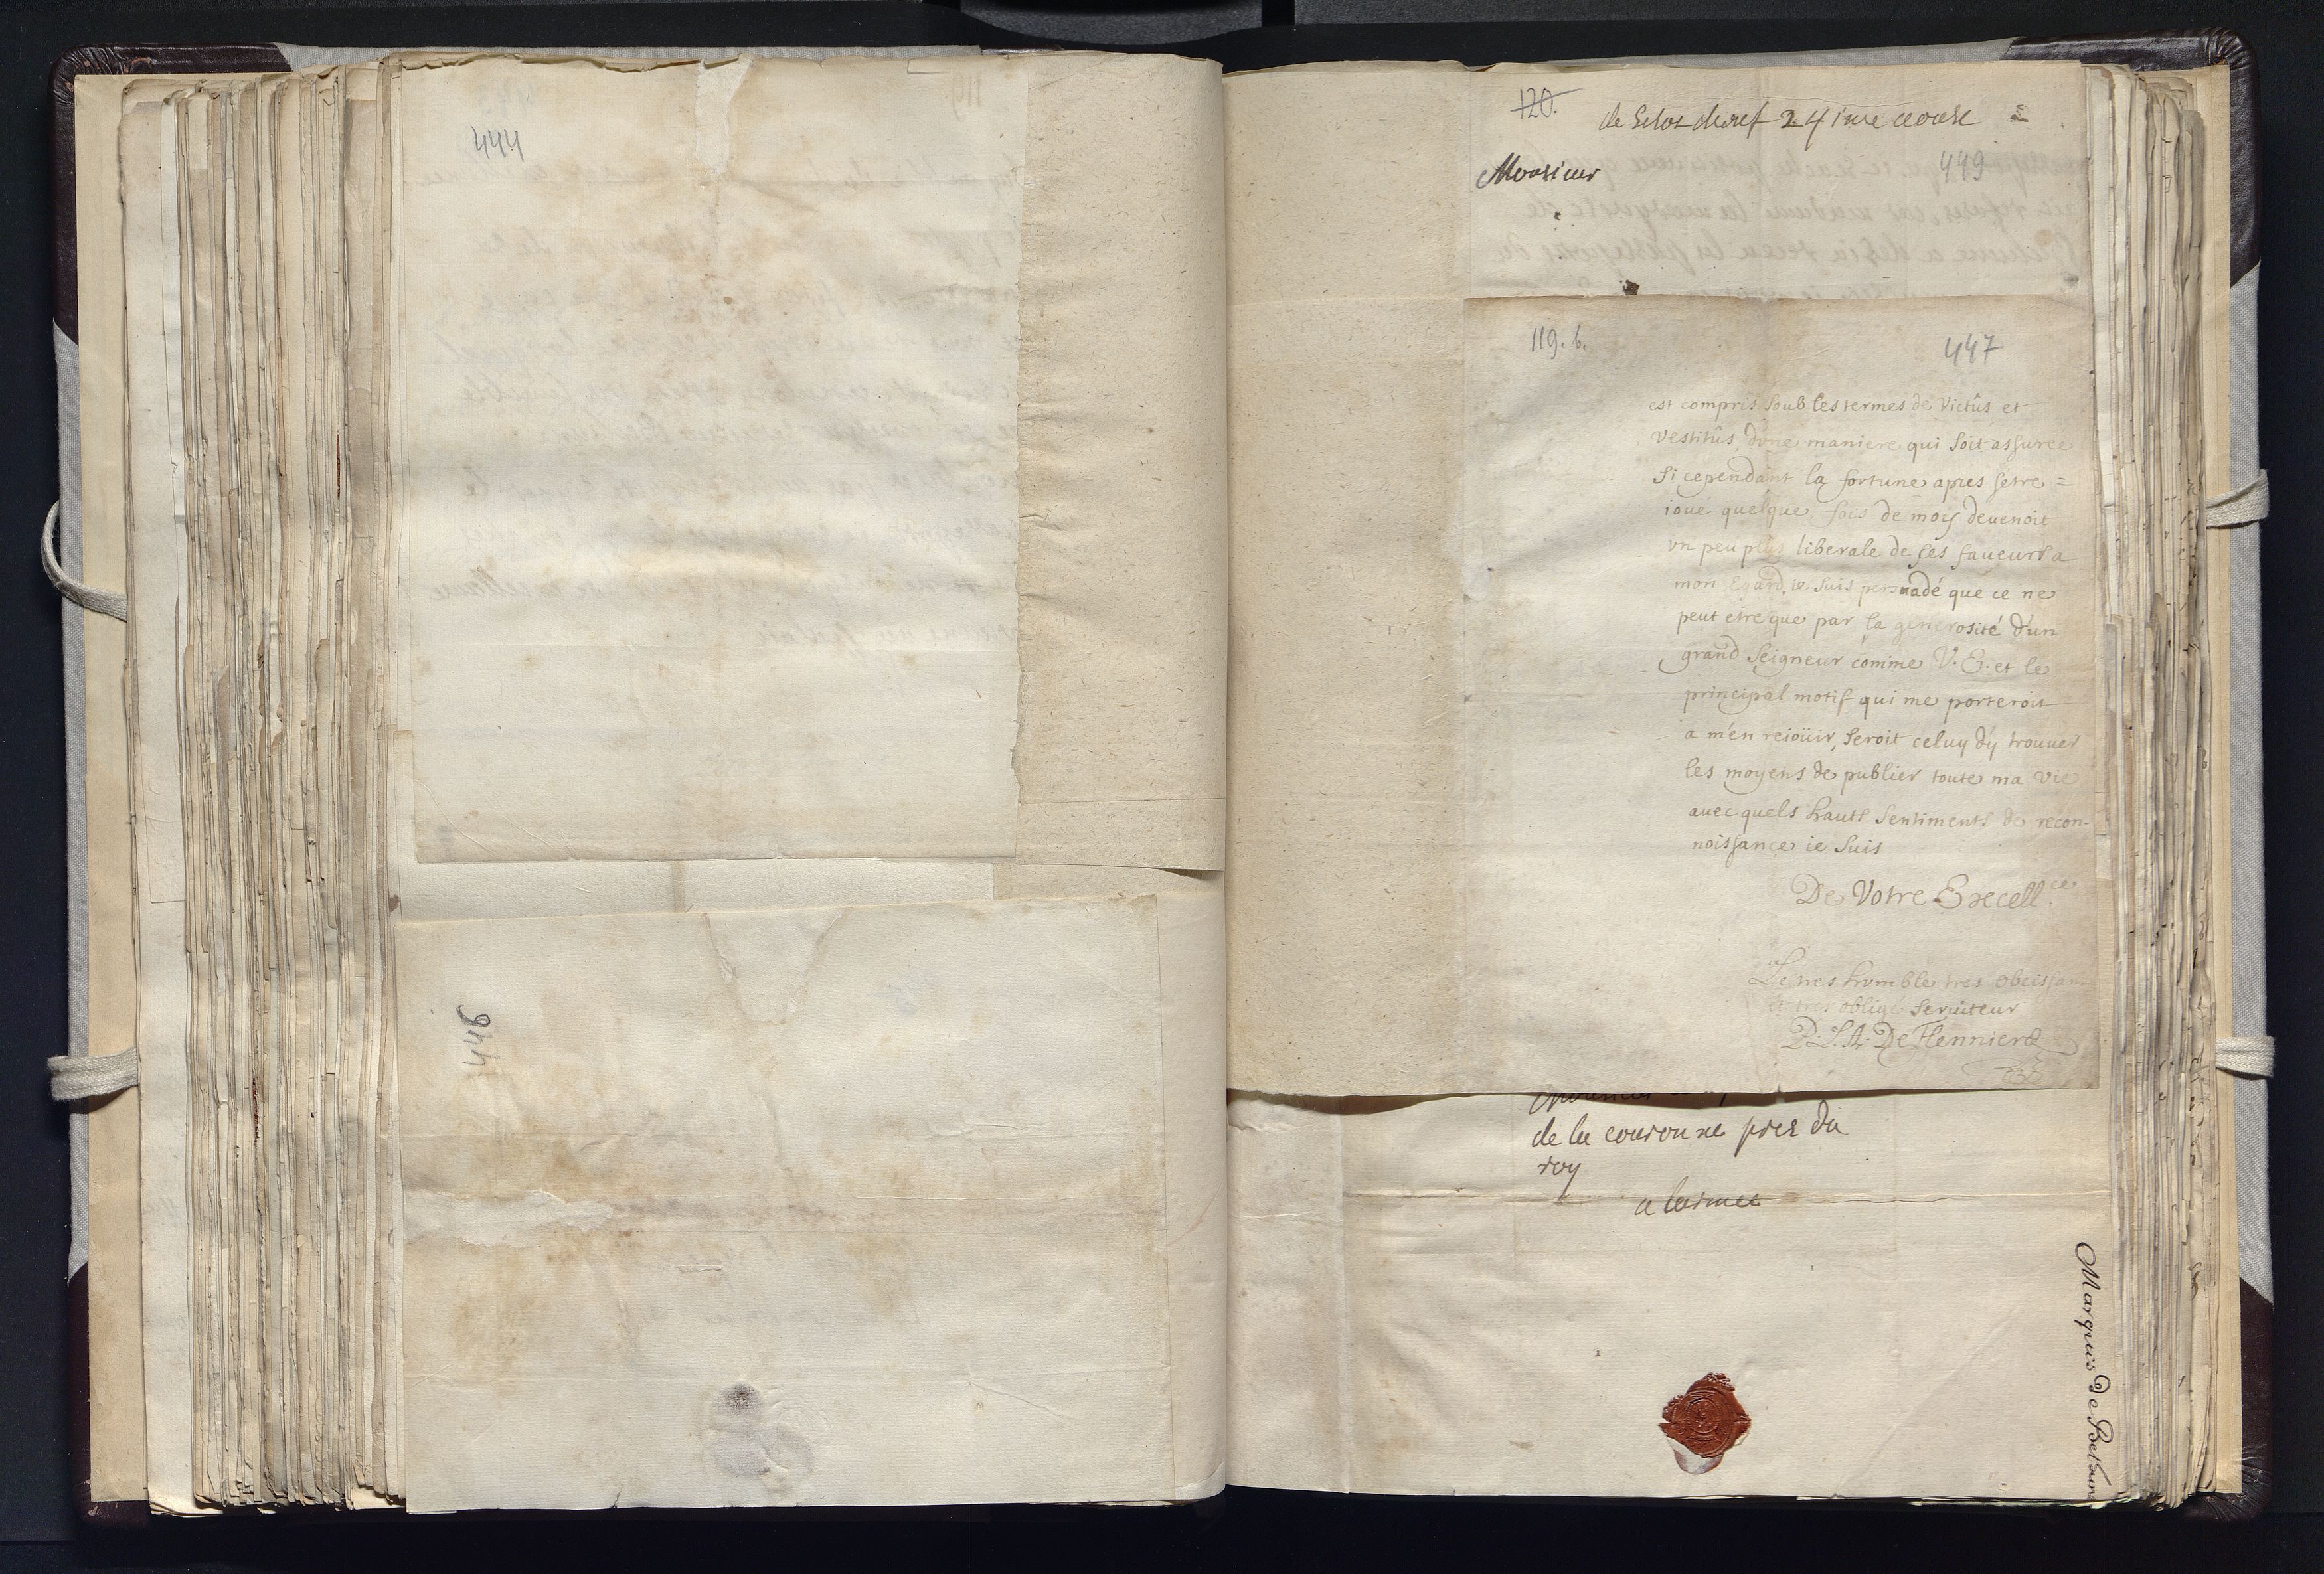 444
446
120.
de 24
Monsieur
449
119. b.
447
est compris soub les termes de victûs et
vestitûs d'une maniere qui soit assuree
si cependant la fortune apres setre =
ioué quelque fois de moy devenoit
un peu plus liberale de ses faueurs a
mon Egard, ie suis persuadé que ce ne
peut etre que par la generosité d'un
grand seigneur comme V. E. et le
principal motif qui me porteroit
a m'en reioüir, seroit celuy d'y trouuer
les moyens de publier toute ma vie
auec quels hauts sentiments de recon-
noissance ie suis
De Votre Excell.ce
Le tres humble tres obeissant
et tres obligé seruiteur
De Flennierd
de la couronne pres du
roy
a larmee
Marquis de Bethune